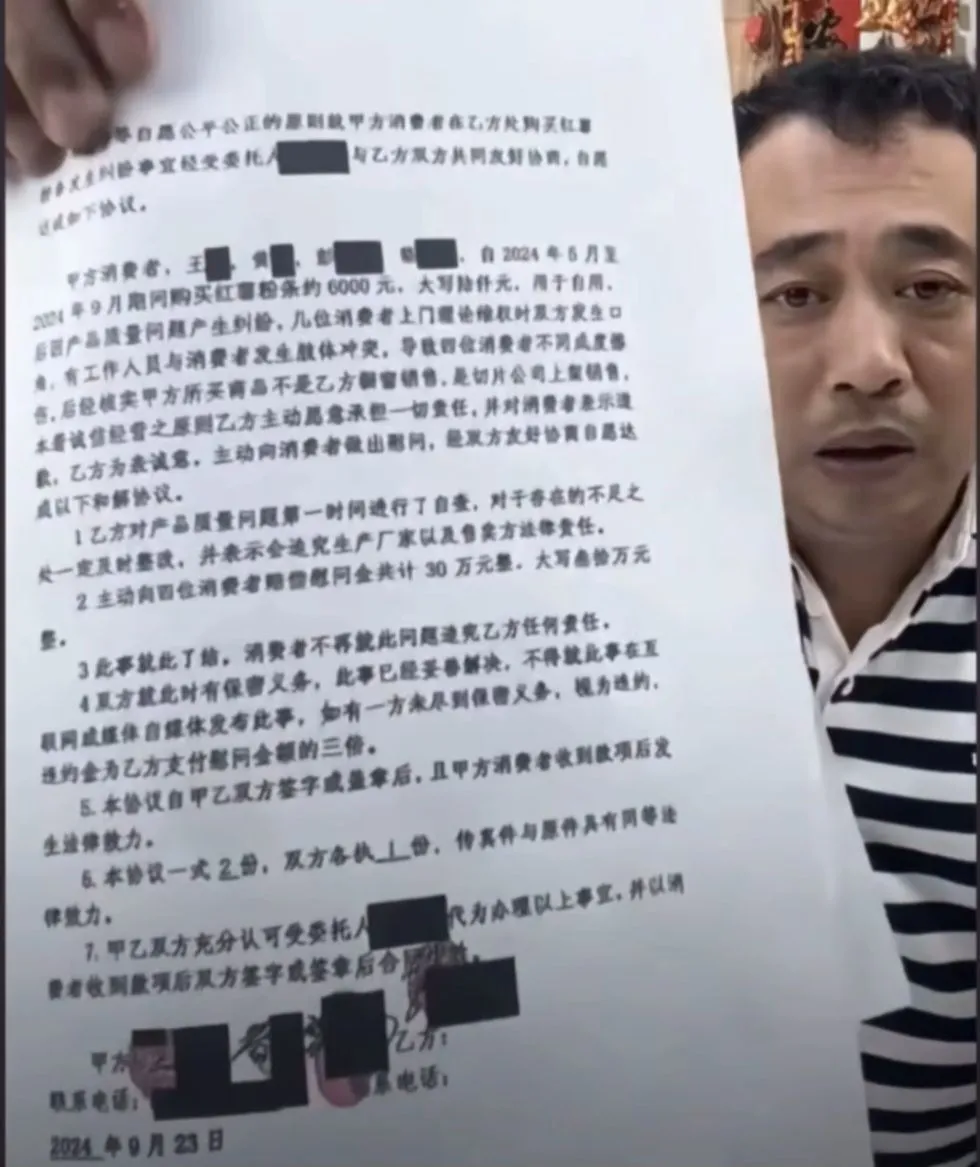 等自愿公平公正的原则就甲方消费者在乙方处购买红薯
粉条发生纠纷事宜经受委托人 与乙方双方共同友好协商,自愿
达成如下协议。
甲方消费者,王 , 黄 , 彭 , . 自 2024 年 5 月至
2024 年 9 月期间购买红薯粉条约 6000 元. 大写陆仟元. 用于自用.
后因产品质量问题产生纠纷,几位消费者上门理论维权时双方发生口
角,有工作人员与消费者发生肢体冲突,导致四位消费者不同成度伤
害,后经核实甲方所买商品不是乙方橱窗销售,是切片公司上架销售,
本着诚信经营之原则乙方主动愿意承担一切责任,并对消费者表示道
歉,乙方为表诚意,主动向消费者做出慰问,经双方友好协商自愿达
成以下和解协议。
1 乙方对产品质量问题第一时间进行了自查,对于存在的不足之
处一定及时整改,并表示会追究生产厂家以及售卖方法律责任。
2 主动向四位消费者赔偿慰问金共计 30 万元整. 大写叁拾万元
整。
3 此事就此了结,消费者不再就此问题追究乙方任何责任。
4 双方就此时有保密义务,此事已经妥善解决,不得就此事在互
联网或媒体自媒体发布此事,如有一方未尽到保密义务,视为违约,
违约金为乙方支付慰问金额的三倍。
5. 本协议自甲乙双方签字或盖章后,且甲方消费者收到款项后发
生法律效力。
6. 本协议一式 2 份,双方各执 1 份,传真件与原件具有同等法
律效力。
7. 甲乙双方充分认可受委托人 代为办理以上事宜,并以消
费者收到款项后双方签字或签章后合同
甲方 乙方:
联系电话: 系电话:
2024 年 9 月 23 日